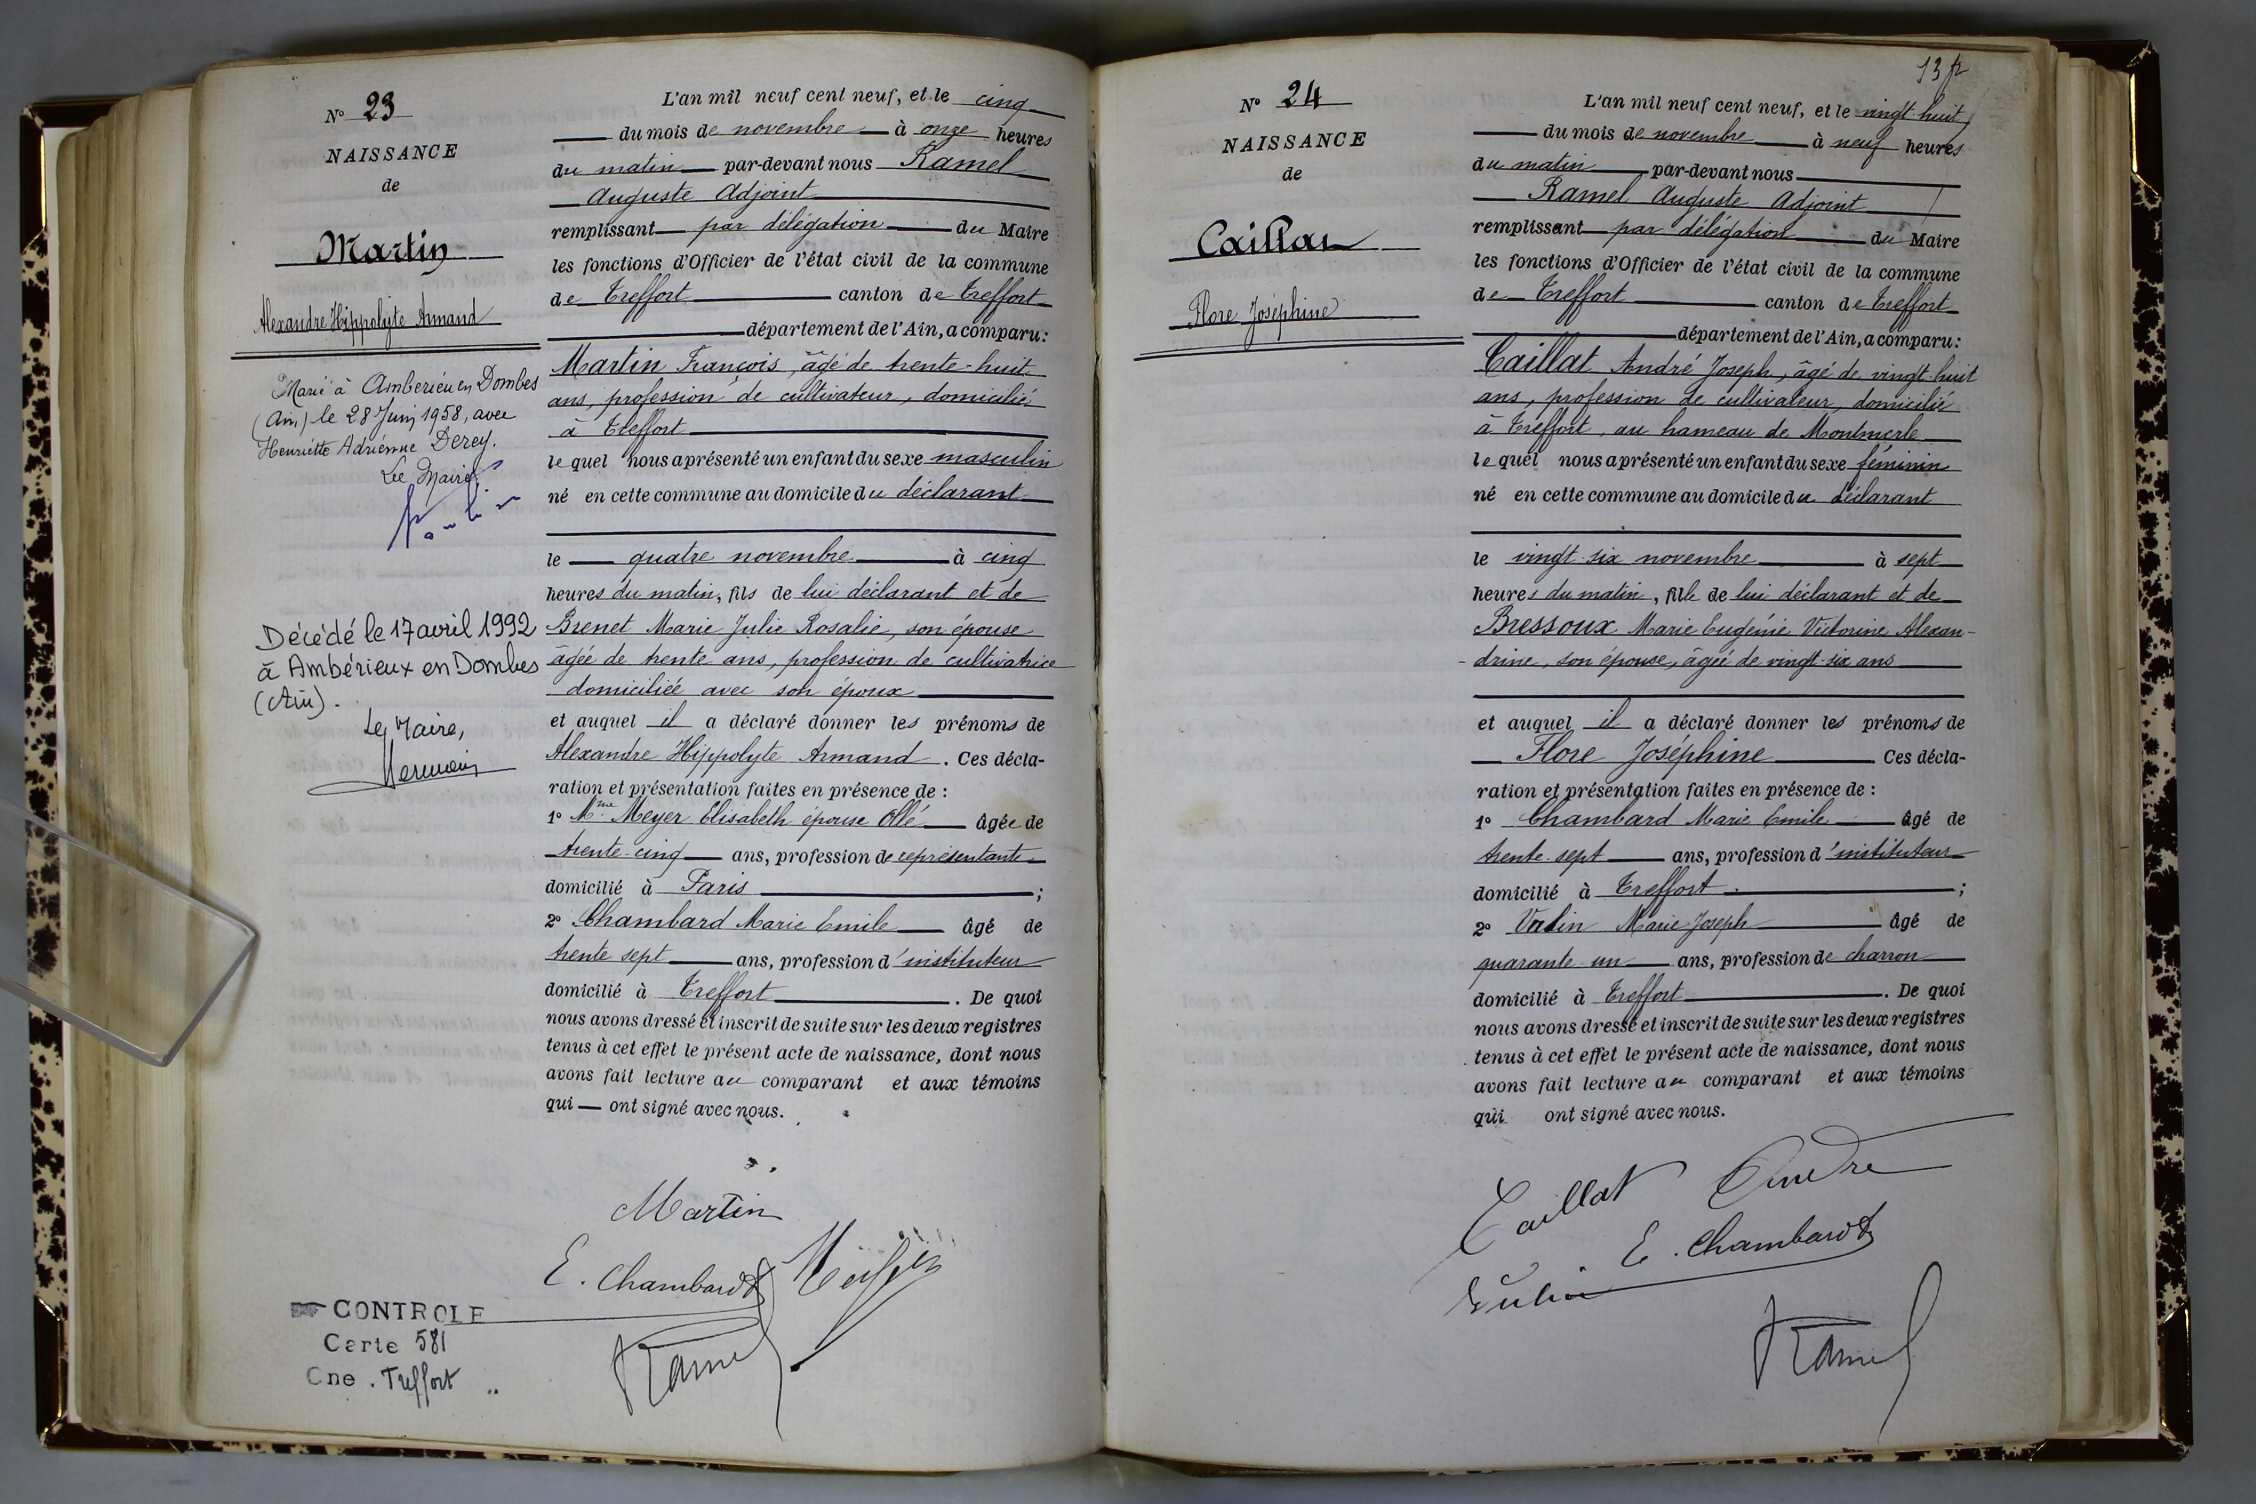 N° 23
NAISSANCE
de
Martin
Alexandre Hippolyte Armand
Marié à Ambérieu en Dombes
(Ain) le 28 Juin 1958, avec
Henriette Adrienne Derey.
Le Maire
Décédé le 17 avril 1992
à Ambérieux en Dombes
(Ain).
Le Maire,
L'an mil neuf cent neuf, et le cinq
du mois de novembre à onze heures
du matin par-devant nous Ramel
Auguste Adjoint
remplissant par délégation du Maire
les fonctions d'Officier de l'état civil de la commune
de Treffort canton de Treffort
département de l'Ain, a comparu:
Martin François, âgé de trente-huit
ans, profession de cultivateur, domicilié
à Treffort
le quel nous a présenté un enfant du sexe masculin
né en cette commune au domicile du déclarant
le quatre novembre à cinq
heures du matin, fils de lui déclarant et de
Brenet Marie Julie Rosalie, son épouse
âgée de trente ans, profession de cultivatrice
domiciliée avec son époux
et auquel il a déclaré donner les prénoms de
Alexandre Hippolyte Armand. Ces décla-
ration et présentation faites en présence de :
1° Mme Meyer Elisabeth épouse Ollé âgée de
trente-cinq ans, profession de représentante
domicilié à Paris ;
2° Chambard Marie Emile âgé de
trente sept ans, profession d'instituteur
domicilié à Treffort. De quoi
nous avons dressé et inscrit de suite sur les deux registres
tenus à cet effet le présent acte de naissance, dont nous
avons fait lecture au comparant et aux témoins
qui — ont signé avec nous.
Martin
E. Chambard
Ramel
CONTROLE
Carte 581
Cne. Treffort
13
N° 24
NAISSANCE
de
Caillat
Flore Joséphine
L'an mil neuf cent neuf, et le vingt-huit
du mois de novembre à neuf heures
du matin par-devant nous
Ramel Auguste Adjoint
remplissant par délégation du Maire
les fonctions d'Officier de l'état civil de la commune
de Treffort canton de Treffort
département de l'Ain, a comparu:
Caillat André Joseph, âgé de vingt-huit
ans, profession de cultivateur, domicilié
à Treffort, au hameau de Montmerle
le quel nous a présenté un enfant du sexe féminin
né en cette commune au domicile du déclarant
le vingt-six novembre à sept
heures du matin, fille de lui déclarant et de
Bressoux Marie Eugénie Victorine Alexan-
-drine, son épouse, âgée de vingt-six ans
et auquel il a déclaré donner les prénoms de
Flore Joséphine Ces décla-
ration et présentation faites en présence de :
1° Chambard Marie Emile âgé de
trente-sept ans, profession d'instituteur
domicilié à Treffort. ;
2° Marie Joseph âgé de
quarante-un ans, profession de charron
domicilié à Treffort. De quoi
nous avons dressé et inscrit de suite sur les deux registres
tenus à cet effet le présent acte de naissance, dont nous
avons fait lecture au comparant et aux témoins
qui ont signé avec nous.
Caillat André
E. Chambard
Ramel